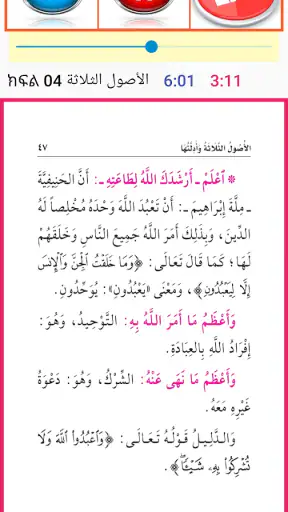 ክፍል 04 الأصول الثلاثة 6:01 3:11
الأُصُولُ الثَّلَاثَةُ وَأَدِلَّتُهَا ٤٧
* اعْلَمْ ـ أَرْشَدَكَ اللَّهُ لِطَاعَتِهِ ـ: أَنَّ الحَنِيفِيَّةَ
ـ مِلَّةَ إِبْرَاهِيمَ ـ: أَنْ تَعْبُدَ اللَّهَ وَحْدَهُ مُخْلِصاً لَهُ
الدِّينَ، وَبِذَلِكَ أَمَرَ اللَّهُ جَمِيعَ النَّاسِ وَخَلَقَهُمْ
لَهَا؛ كَمَا قَالَ تَعَالَى: ﴿وَمَا خَلَقْتُ ٱلْجِنَّ وَٱلْإِنسَ
إِلَّا لِيَعْبُدُونِ﴾، وَمَعْنَى «يَعْبُدُونِ»: يُوَحِّدُونِ.
وَأَعْظَمُ مَا أَمَرَ اللَّهُ بِهِ: التَّوْحِيدُ، وَهُوَ:
إِفْرَادُ اللَّهِ بِالعِبَادَةِ.
وَأَعْظَمُ مَا نَهَى عَنْهُ: الشِّرْكُ، وَهُوَ: دَعْوَةُ
غَيْرِهِ مَعَهُ.
وَالدَّلِيلُ قَوْلُهُ تَعَالَى: ﴿وَٱعْبُدُوا۟ ٱللَّهَ وَلَا
تُشْرِكُوا۟ بِهِۦ شَيْـًٔا﴾.